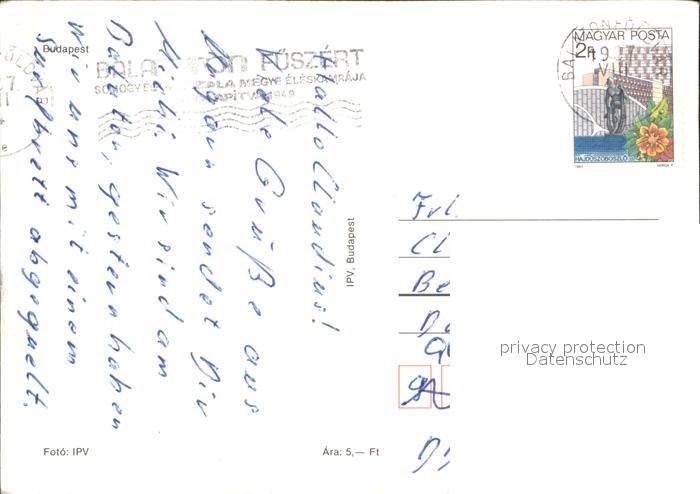 Budapest
BALATON FŰSZÉRT
SOMOGY ÉS ZALA MEGYE ÉLÉSKAMRÁJA
ALAPÍTVA 1949
MAGYAR POSTA
2Ft
HAJDÚSZOBOSZLÓ
1983 VARGA P.
Hallo Claudius!
Viele Grüße aus
Ungarn sendet Dir
Michi. Wir sind am
Balaton, gestern haben
wir uns mit einem
Surfbrett abgequält.
IPV, Budapest
Frl.
Cl
Be
privacy protection
Datenschutz
Fotó: IPV
Ára: 5,— Ft